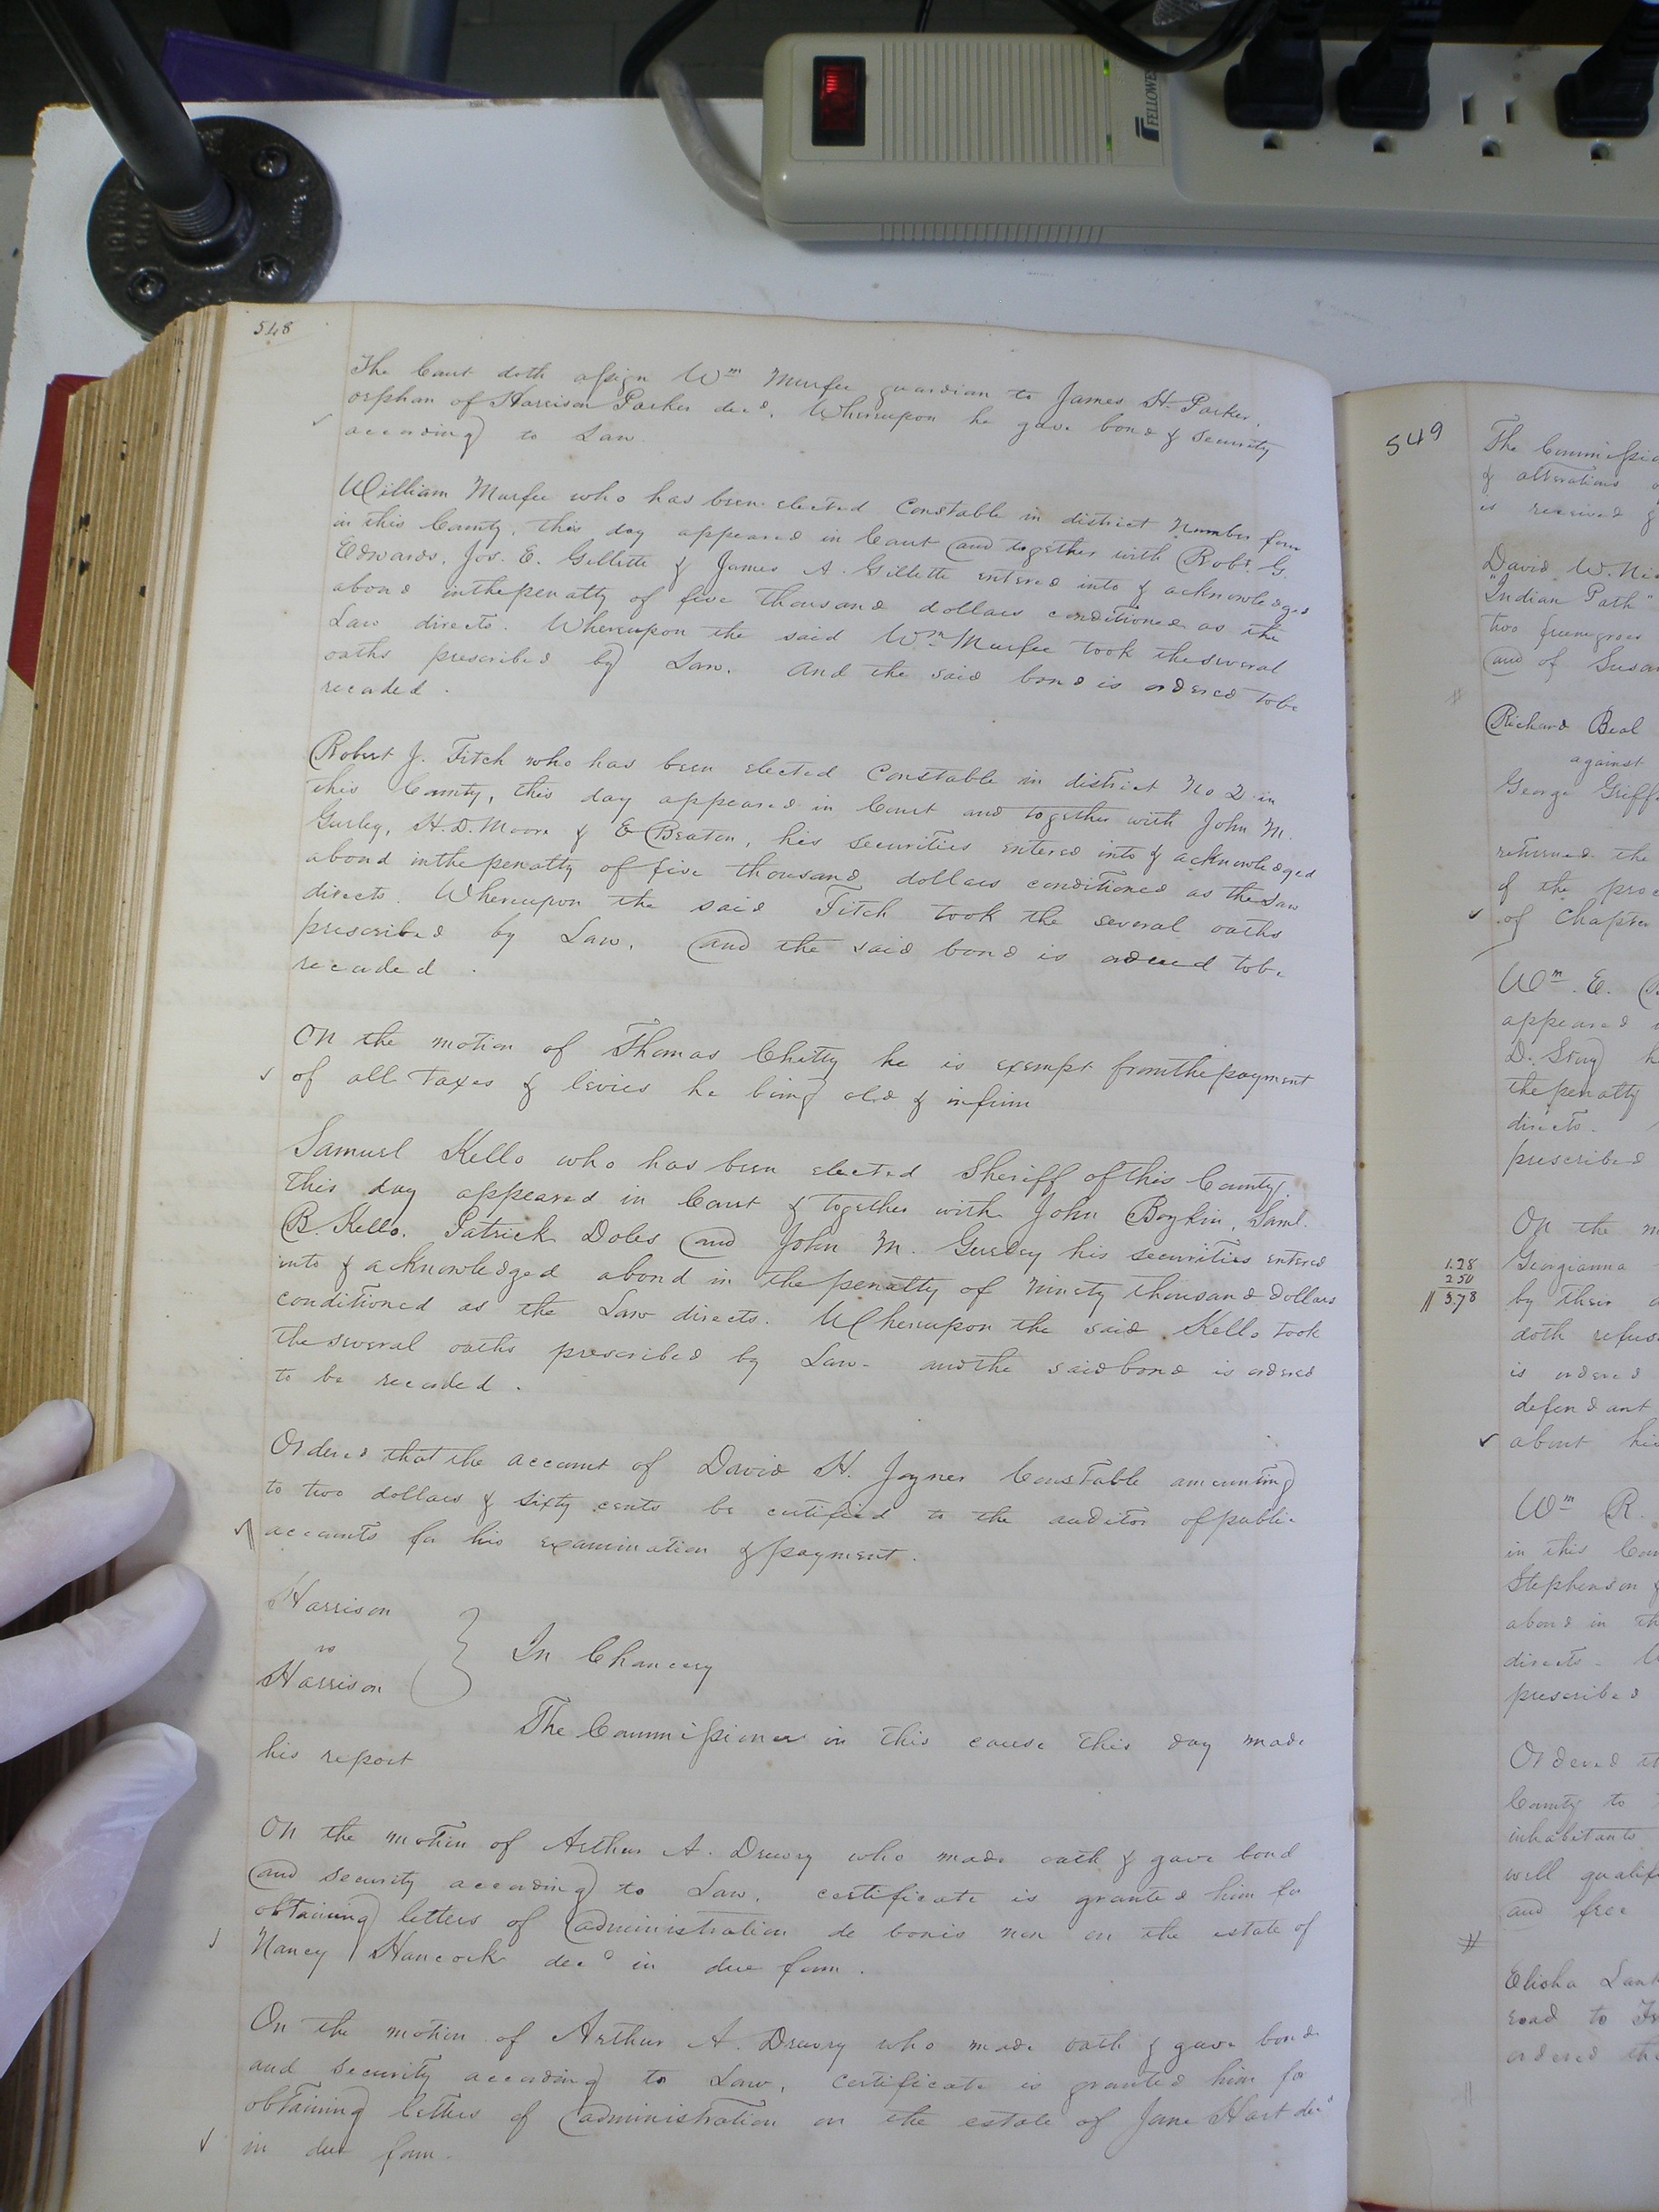 FELLOWES
548
The Court doth assign Wm Murfee guardian to James H. Parker,
orphan of Harrison Parker decd. Whereupon he gave bond & security
according to Law.
William Murfee who has been elected Constable in district Number four
in this County, this day appeared in Court and together with Robt. G.
Edwards, Jos. E. Gillette & James A. Gillette entered into & acknowledged
abond inthepenalty of five thousand dollars conditioned as the
Law directs. Whereupon the said Wm Murfee took theseveral
oaths prescribed by Law. And the said bond is ordered tobe
recorded.
Robert J. Fitch who has been elected Constable in district No 2 in
this County, this day appeared in Court and together with John M.
Gurley, H.D. Moore & E Beaton, his securities entered into & acknowledged
abond inthepenalty of five thousand dollars conditioned as the Law
directs. Whereupon the said Fitch took the several oaths
prescribed by Law, and the said bond is ordered tobe
recorded.
On the motion of Thomas Chitty he is exempt fromthepayment
of all Taxes & levies he being old & infirm
Samuel Kello who has been elected Sheriff of this County,
this day appeared in Court & together with John Boykin, Saml.
B. Kello, Patrick Doles and John M. Gurley his securities entered
into & acknowledged abond in the penalty of ninety thousand dollars
conditioned as the Law directs. Whereupon the said Kello took
the several oaths prescribed by Law- and the said bond is ordered
to be recorded.
Ordered that the account of David H. Joyner Constable amounting
to two dollars & sixty cents be certified to the auditor of public
accounts for his examination & payment.
Harrison
vs
Harrison
In Chancery
The Commissioner in this cause this day made
his report
On the motion of Arthur A. Drewry who made oath & gave bond
and security according to Law, certificate is granted him for
obtaining letters of administration de bonis non on the estate of
Nancy Hancock decd in due form.
On the motion of Arthur A. Drewry who made oath & gave bond
and security according to Law, certificate is granted him for
obtaining letters of administration on the estate of Jane Hart decd
in due form.
549
The Commissio
& alterations
is received
David W. Ni
"Indian Path"
two freenegroes
and of Susan
Richard Beal
against
George Griff
returned the
of the proc
of Chapter
Wm. E.
appeared
D. Stay
the penalty
directs.
prescribed
On the m
Georgeanna
1.28
2.50
3.78
by their
doth refus
is ordered
defendant
about his
Wm R.
in this Cou
Stephenson &
abond in th
directs.
prescribed
Ordered th
County to
inhabitants
will qualif
and free
Elisha Lank
road to
ordered tha